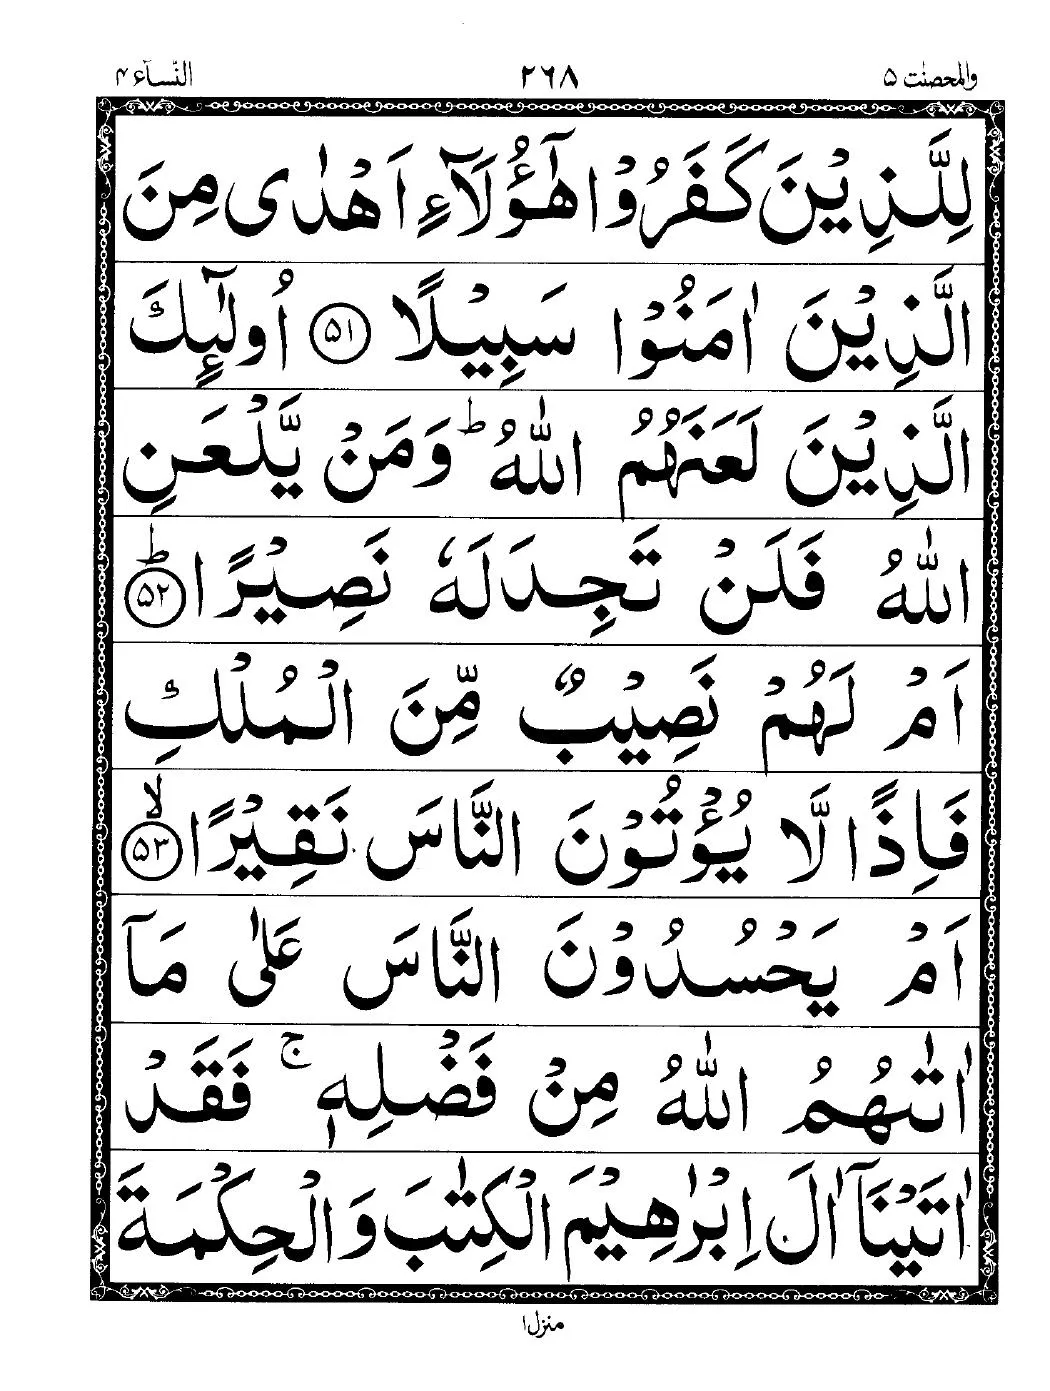 والمحصنٰت ۵ ۲۶۸ النّسآء ۴
لِلَّذِیْنَ كَفَرُوْا هٰۤؤُلَآءِ اَهْدٰی مِنَ
الَّذِیْنَ اٰمَنُوْا سَبِیْلًا ۵۱ اُولٰٓىِٕكَ
الَّذِیْنَ لَعَنَهُمُ اللّٰهُ ؕ وَمَنْ یَّلْعَنِ
اللّٰهُ فَلَنْ تَجِدَ لَهٗ نَصِیْرًا ؕ ۵۲
اَمْ لَهُمْ نَصِیْبٌ مِّنَ الْمُلْكِ
فَاِذًا لَّا یُؤْتُوْنَ النَّاسَ نَقِیْرًا ۙ ۵۳
اَمْ یَحْسُدُوْنَ النَّاسَ عَلٰی مَاۤ
اٰتٰىهُمُ اللّٰهُ مِنْ فَضْلِهٖ ۚ فَقَدْ
اٰتَیْنَاۤ اٰلَ اِبْرٰهِیْمَ الْكِتٰبَ وَالْحِكْمَةَ
منزل ۱